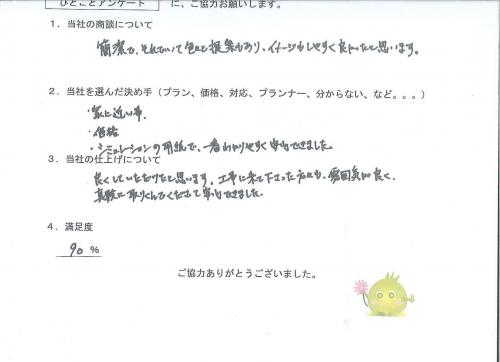 ひとことアンケート に、ご協力お願いします。
1．当社の商談について
簡潔で、それでいて色々と提案もあり、イメージもしやすく良かったと思います。
2．当社を選んだ決め手（プラン、価格、対応、プランナー、分からない、など。。。）
・家に近い事。
・価格
・シミュレーションの用紙で、一番わかりやすく安心できました。
3．当社の仕上げについて
良くしていただけたと思います。工事に来て下さった方々も、雰囲気が良く、
真剣に取りくんでくださって安心できました。
4．満足度
90 %
ご協力ありがとうございました。